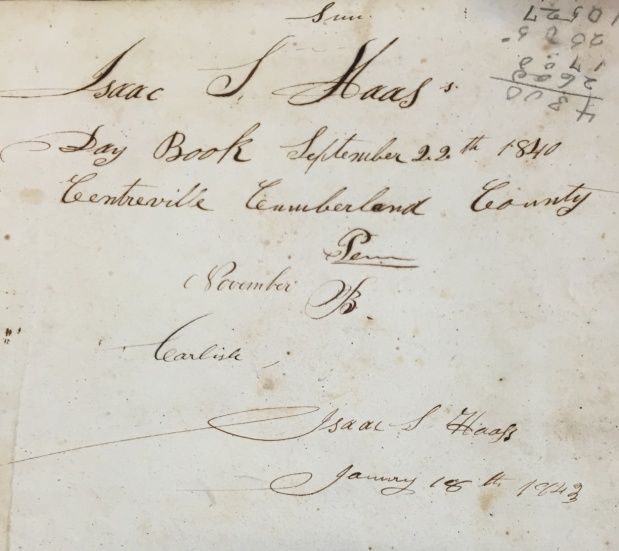 Isaac S. Haas's
Day Book September 22th 1840
Centreville Cumberland County
Penn
November B
Carlisle
Isaac S Haass
Janury 18th 1843